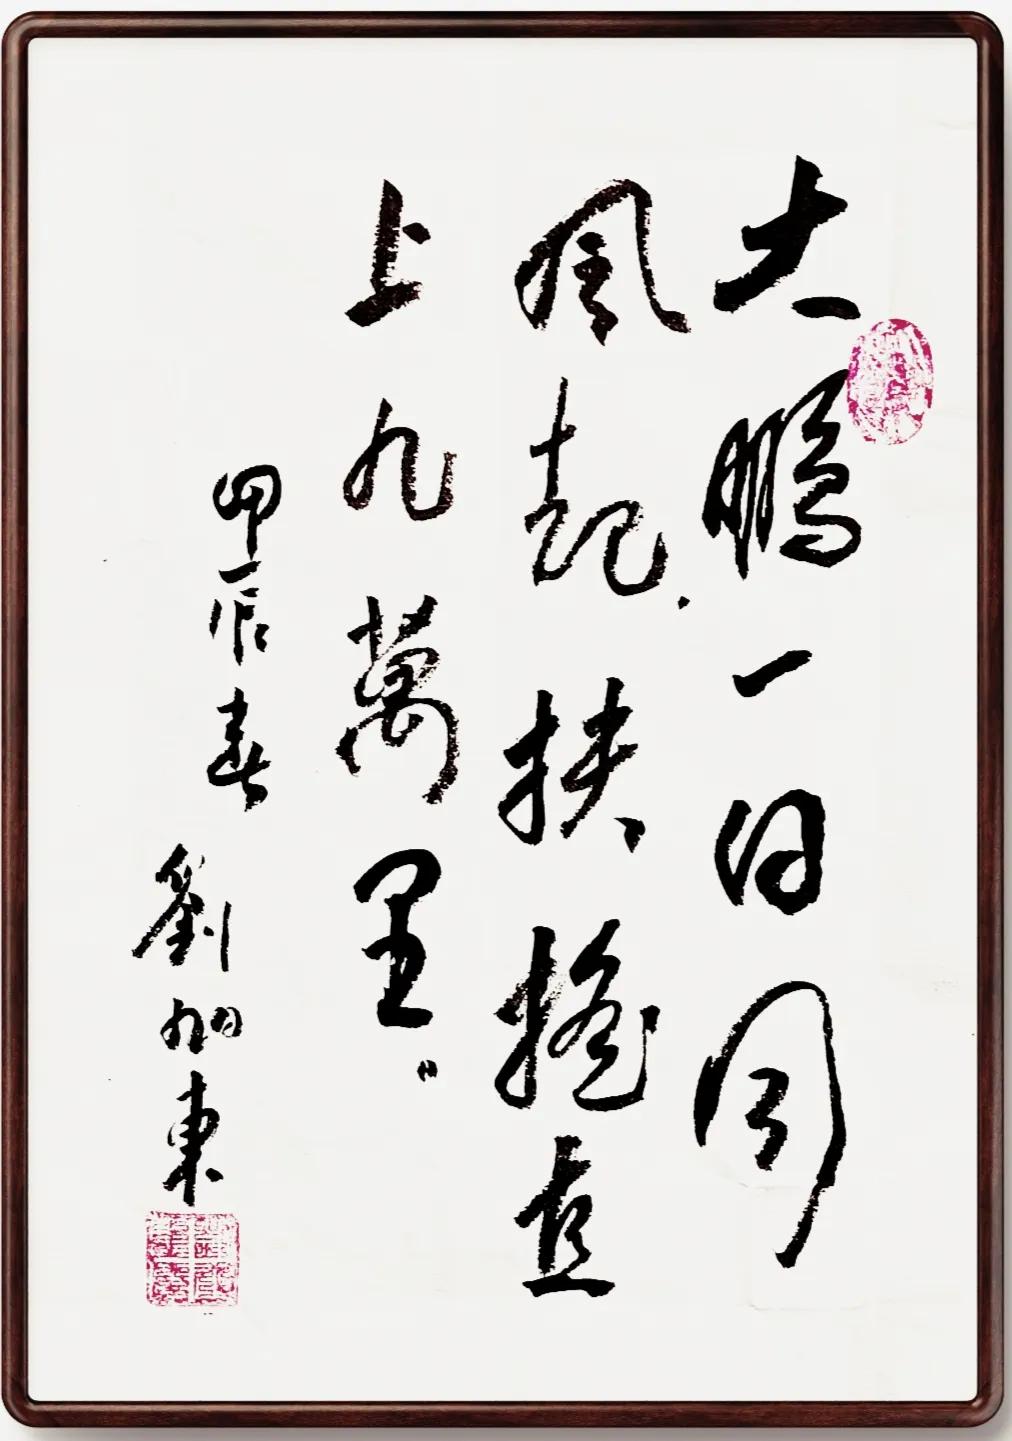 大鹏一日同
風起扶摇直
上九萬里
甲辰春
劉旭東